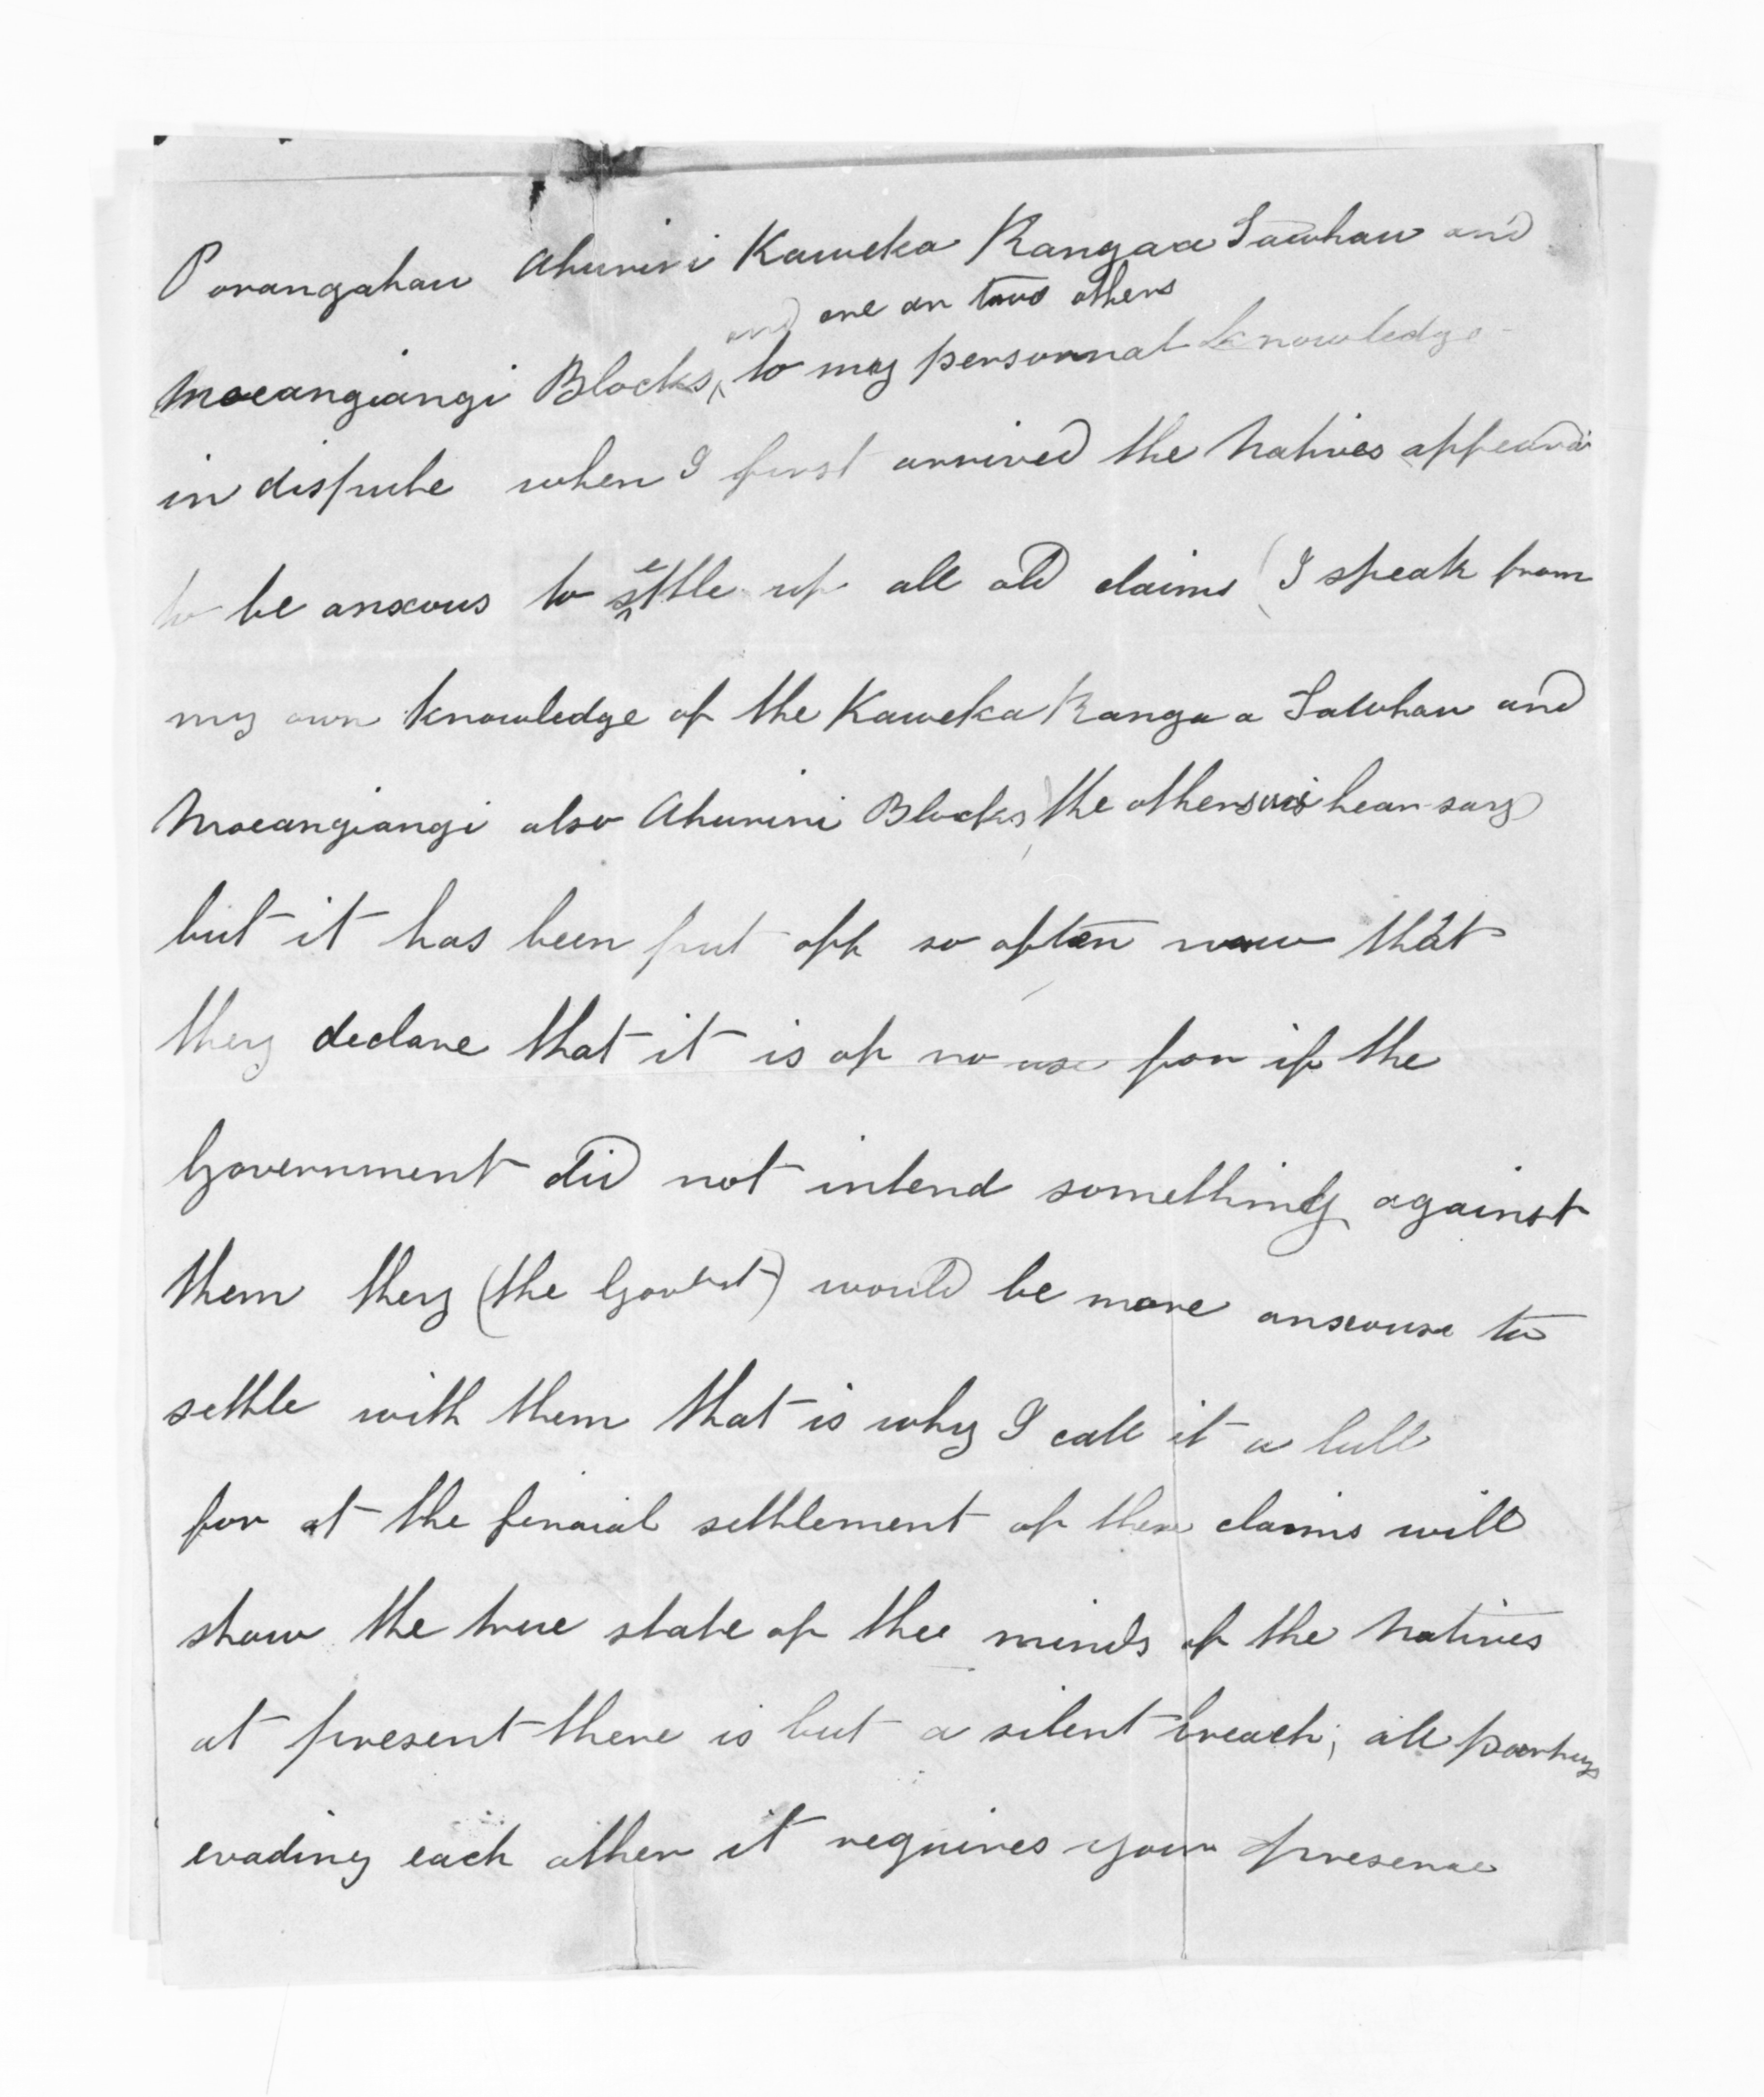 Porangahau Ahuriri Kaweka Rangaa Tawhau and
and one or two others
Moeangiangi Blocks, to my personnal knowledge
in dispute when I first arrived the Natives appeard
to be anxous to settle up all old claims (I speak from
my own knowledge of the Kaweka Ranga a Tawhau and
Moeangiangi also Ahuriri Blocks, the others is hear say)
but it has been put off so often now that
they declare that it is of no use for if the
Government did not intend something against
them they (the Govt) would be more anxouse to
settle with them that is why I call it a lull
for at the finaial settlement of these claims will
show the true state of thee minds of the Natives
at present there is but a silent breach; all partys
evading each other it requires your presence